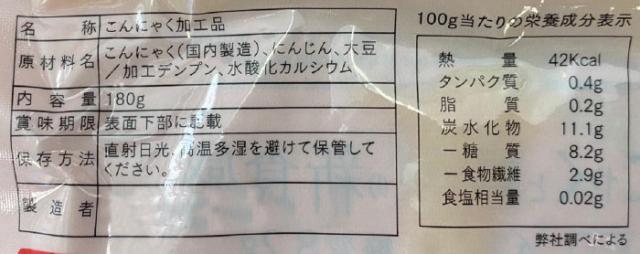 名称 こんにゃく加工品
原材料名 こんにゃく(国内製造)、にんじん、大豆
/加工デンプン、水酸化カルシウム
内容量 180g
賞味期限 表面下部に記載
保存方法 直射日光、高温多湿を避けて保管して
ください。
製造者
100g当たりの栄養成分表示
熱量 42Kcal
タンパク質 0.4g
脂質 0.2g
炭水化物 11.1g
ー糖質 8.2g
ー食物繊維 2.9g
食塩相当量 0.02g
弊社調べによる